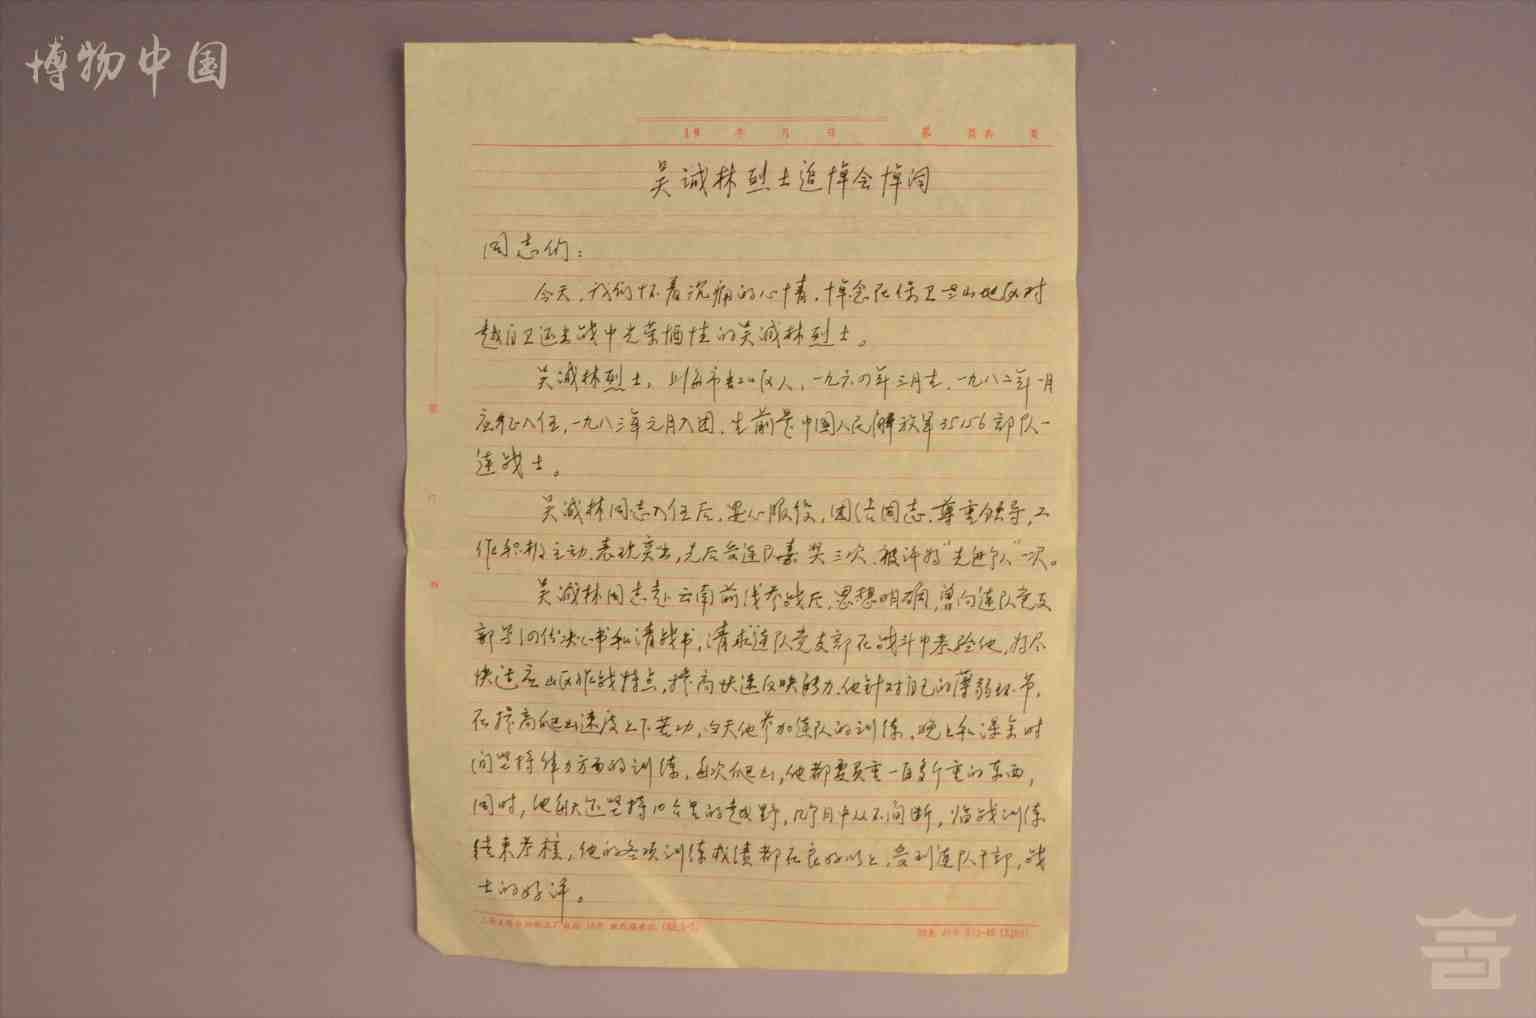 博物中国
19 年 月 日 第 页共 页
吴诚林烈士追悼会悼词
同志们：
今天，我们怀着沉痛的心情，悼念在保卫老山地区对
越自卫还击战中光荣牺牲的吴诚林烈士。
吴诚林烈士，上海市 区人，一九六四年三月生，一九八二年一月
应征入伍，一九八三年元月入团，生前是中国人民解放军35156部队一
连战士。
吴诚林同志入伍后，安心服役，团结同志，尊重领导，工
作积极主动、表现突出，先后受连队嘉奖三次，被评为“先进个人”一次。
吴诚林同志赴云南前线参战后，思想明确，曾向连队党支
部写 份决心书和请战书，请求连队党支部在战斗中考验他，为尽
快适应山区作战特点，提高快速反映能力，他针对自己的薄弱环节，
在提高爬山速度上下苦功，白天他参加连队的训练，晚上和课余时
间坚持体力方面的训练，每次爬山，他都要负重一百多斤重的东西，
同时，他每天还坚持10公里的越野，几个月中从不间断，临战训练
结束考核，他的各项训练成绩都在良好以上，受到连队干部，战
士的好评。